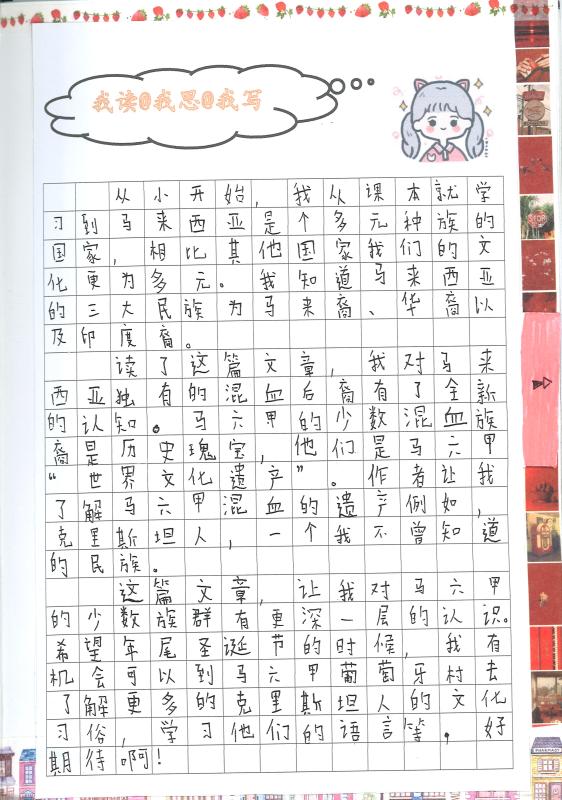 我读、我思、我写
从小开始，我从课本就学
习到马来西亚是个多元种族的
国家，相比其他国家我们的文
化更为多元。我知道马来西亚
的三大民族为马来裔、华裔以
及印度裔。
读了这篇文章，我对马来
西亚独有的混血后裔有了全新
的认知。马六甲的少数混血族
裔是历史瑰宝，他们是马六甲
“世界文化遗产”。作者让我
了解马六甲混血的遗产例如，
克里斯坦人，一个我不曾知道
的民族。
这篇文章，让我对马六甲
的少数族群有更深一层的认识。
希望年尾圣诞节的时候，我有
机会可以到马六甲葡萄牙村去
了解更多的克里斯坦人的文化
习俗，学习他们的语言等，好
期待啊！
STOP
PHARMACY